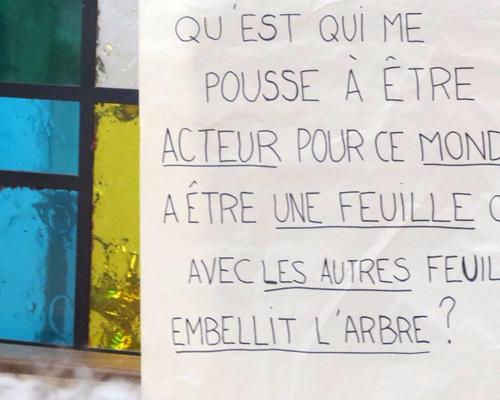 QU'EST QUI ME
POUSSE À ÊTRE
ACTEUR POUR CE MOND
A ÊTRE UNE FEUILLE
AVEC LES AUTRES FEUIL
EMBELLIT L'ARBRE ?